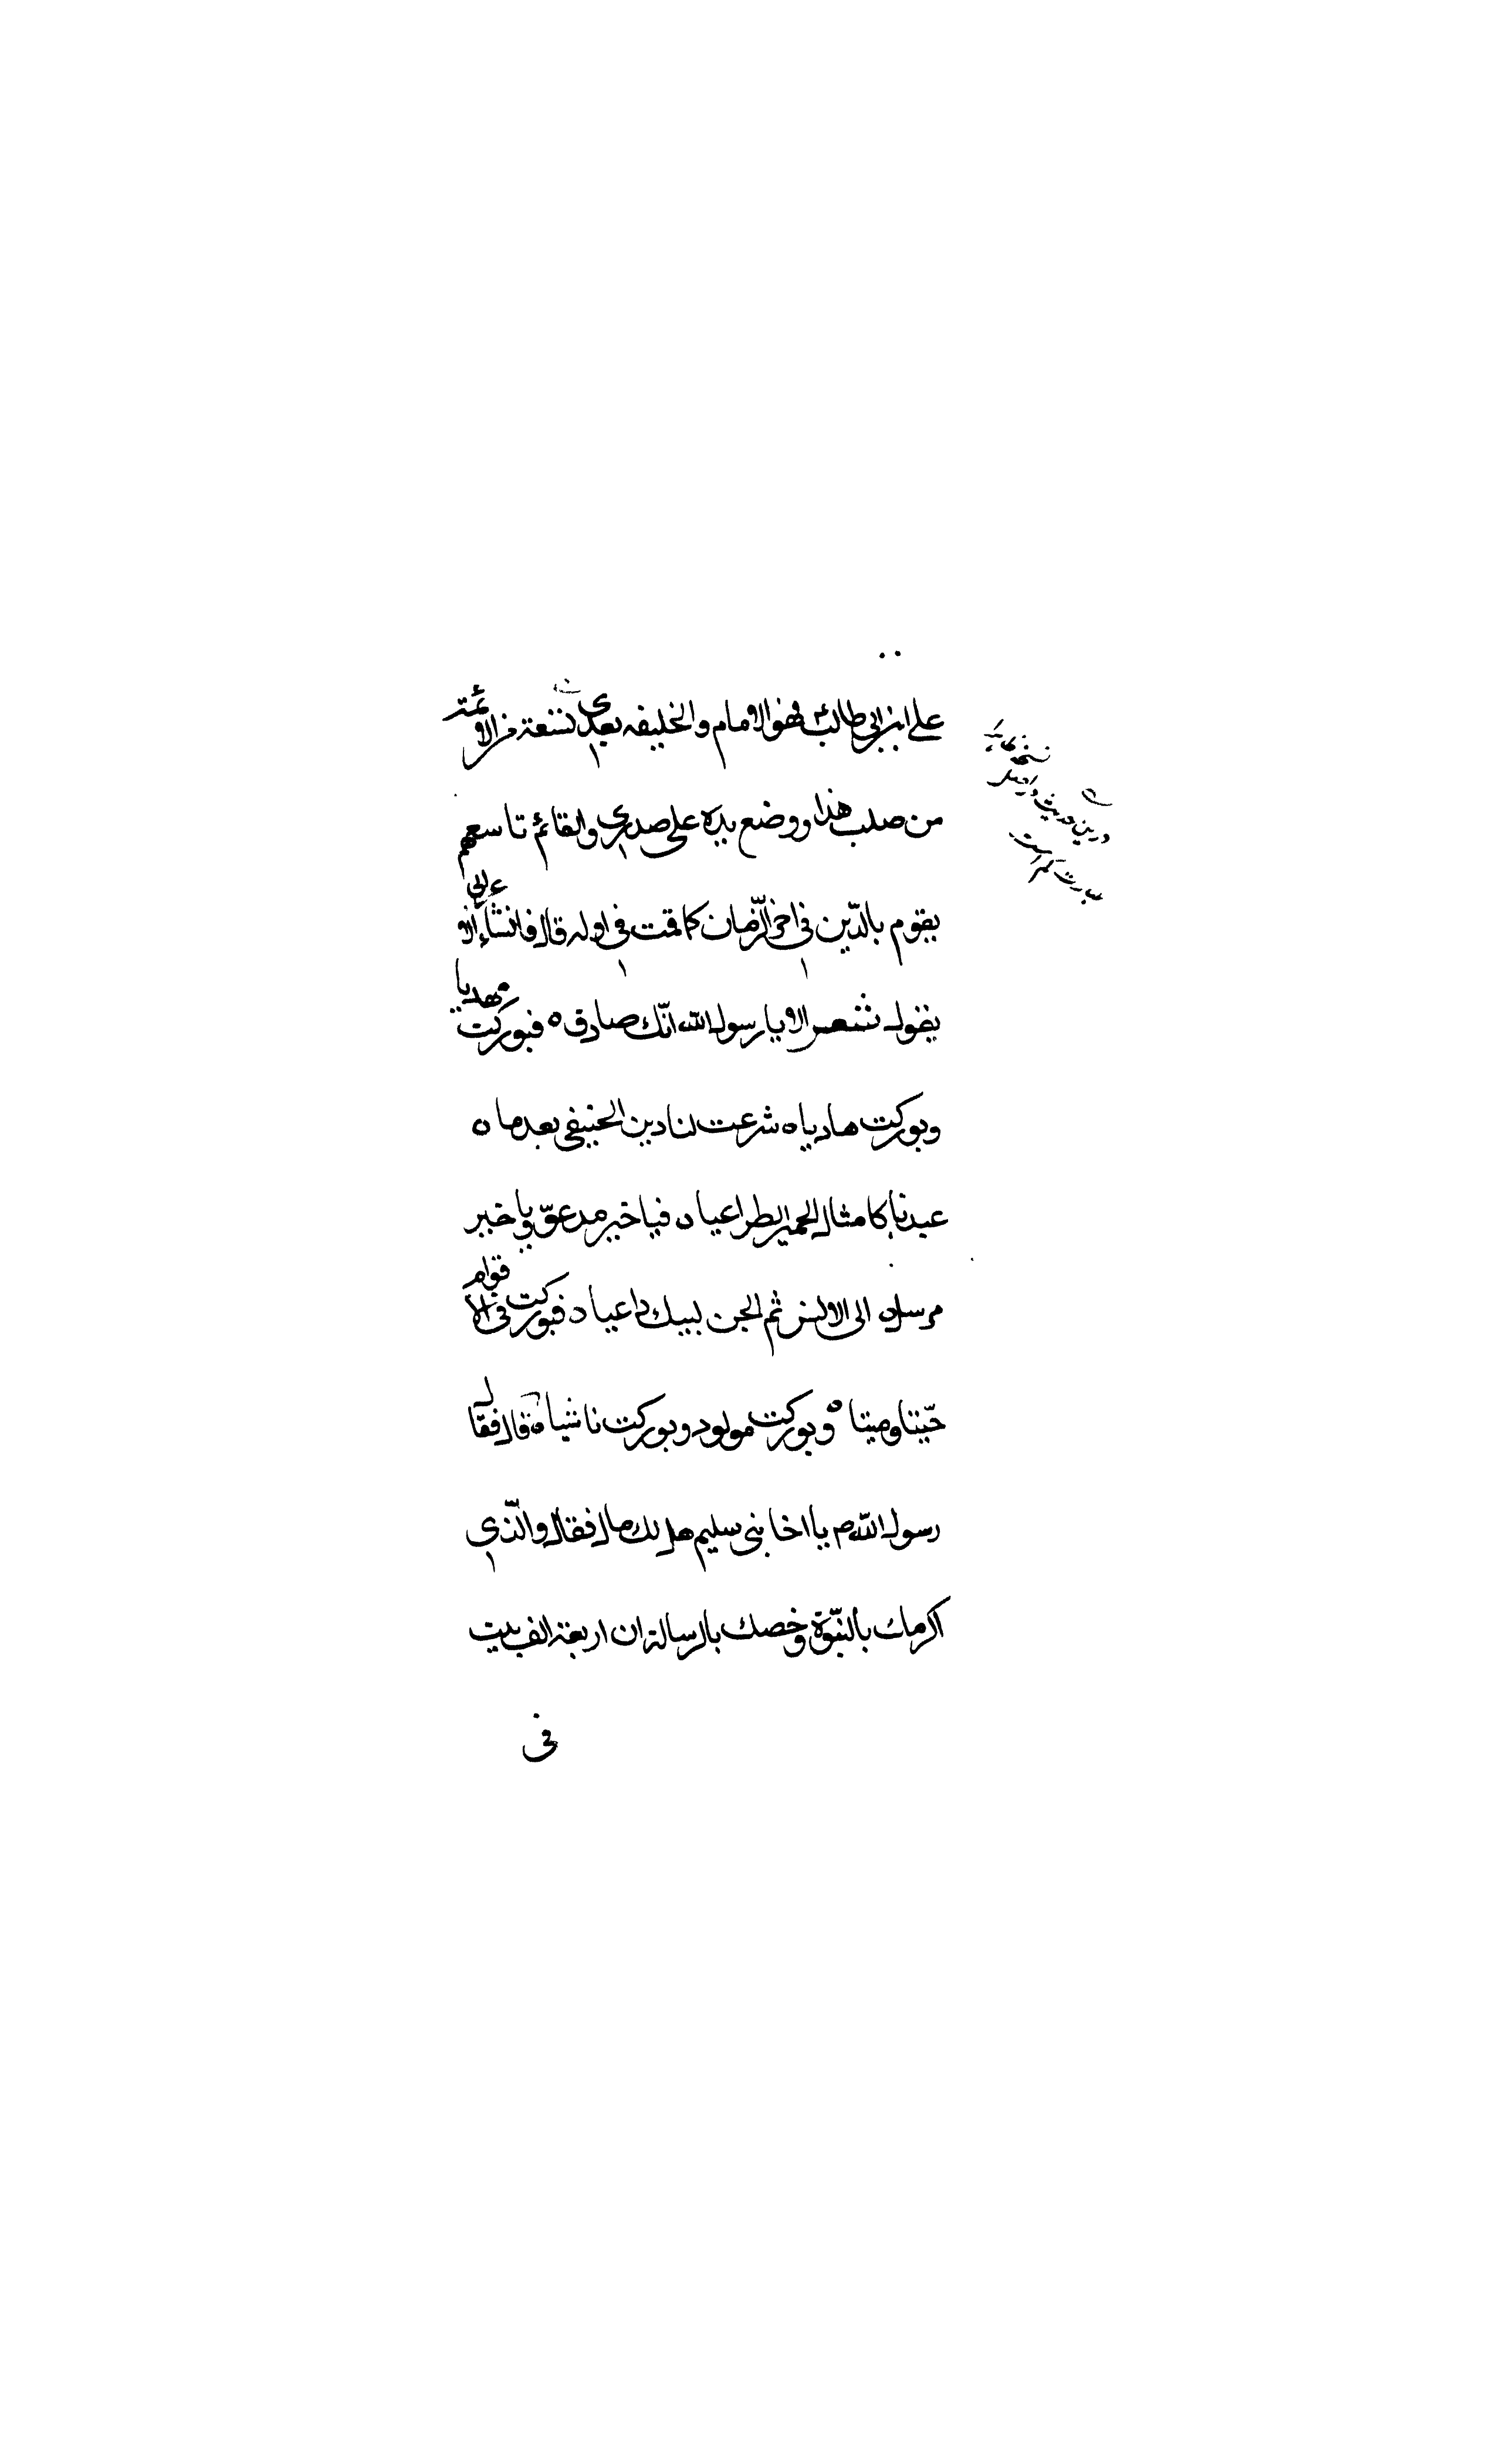 علي ابن ابي طالب فهو الامام والخليفه بعدي تسعة من الائمة
من صلب هذا ووضع يده علي صدري والقائم تاسعهم
يقوم بالدّين في اخر الزّمان كما قمت في اوله قال فانشاء الاعرابي
يقول شعر الا يا رسول الله انّك صادق ه فبوركت مهديا
وبوركت هاديا ه شرعت لنا دين الحنيفي بعد ما ه
عبدنا كامثال الحمير الطراغيا ه فيا خير مدعوّ ويا خير
مرسل ه الى الانس ثم الجن لبيك داعيا ه فبوركت في الاقوام
حيّتا وميتا ه وبوركت مولود وبوركت ناشيا ه قال فقال
رسول الله ص يا اخا بني سليم هل لك مال فقال والّذي
اكرمك بالنبّوة وخصك بالرسالة ان اربعة الف بيت
في